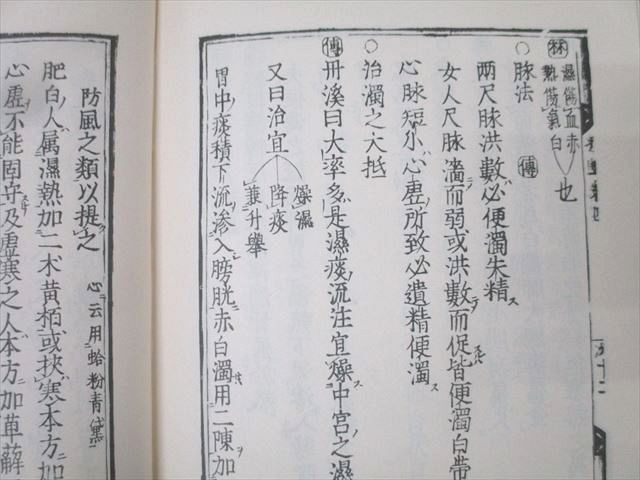 林 濕傷血赤 熱傷氣白 也
○脉法 傳
兩尺脉洪數必便濁失精ス
女人尺脉濇而弱或洪數ニ而促皆便濁白帶
心脉短小心虛所致必遺精便濁ス
○治濁之大抵
傳 丹溪曰大率多是濕痰流注宜燥中宮之濕
又曰治宜 燥濕 降痰 兼升舉
胃中痰積下流滲入膀胱赤白濁用二陳加
防風之類以提之 心云用蛤粉青黛
肥白人属濕熱加二术黄栢或挾寒本方加
心虛不能固守及虛寒之人本方加萆薢